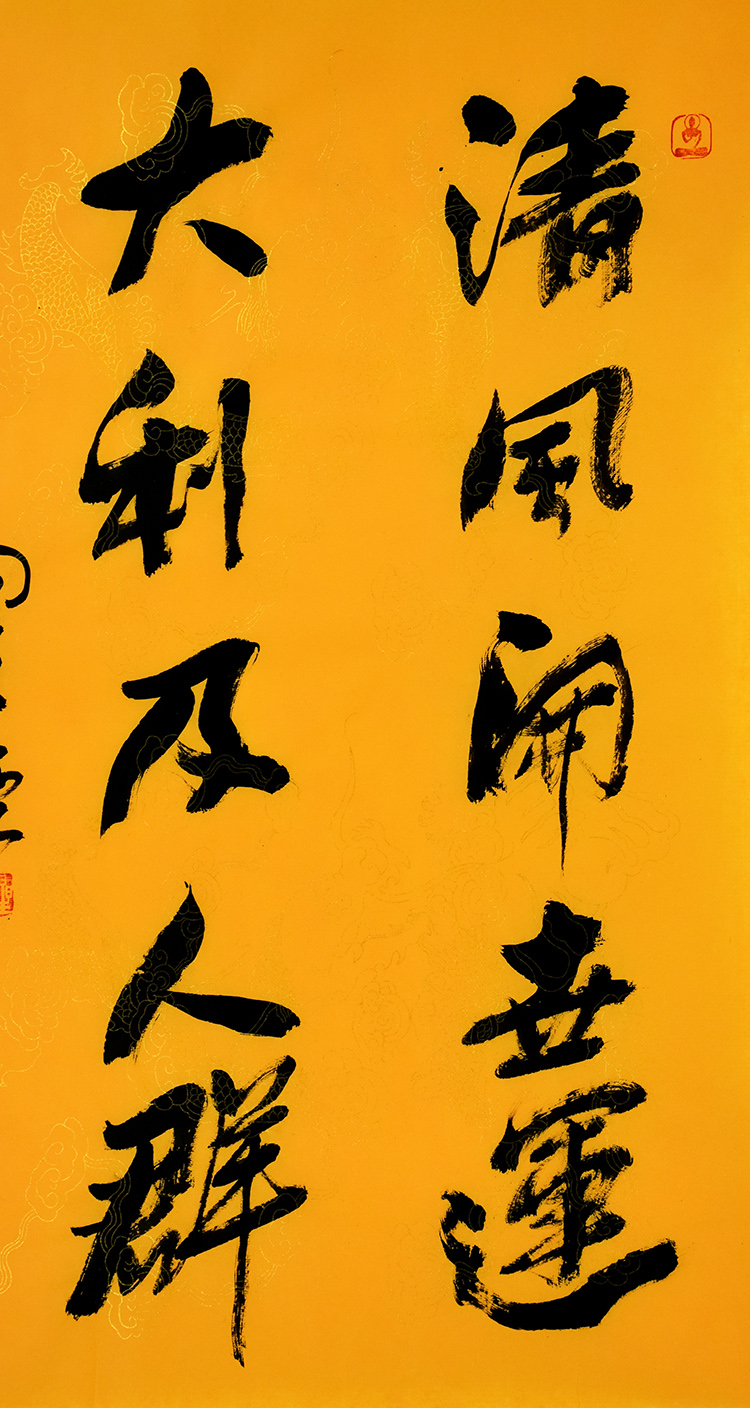 清風開世運
大利及人群